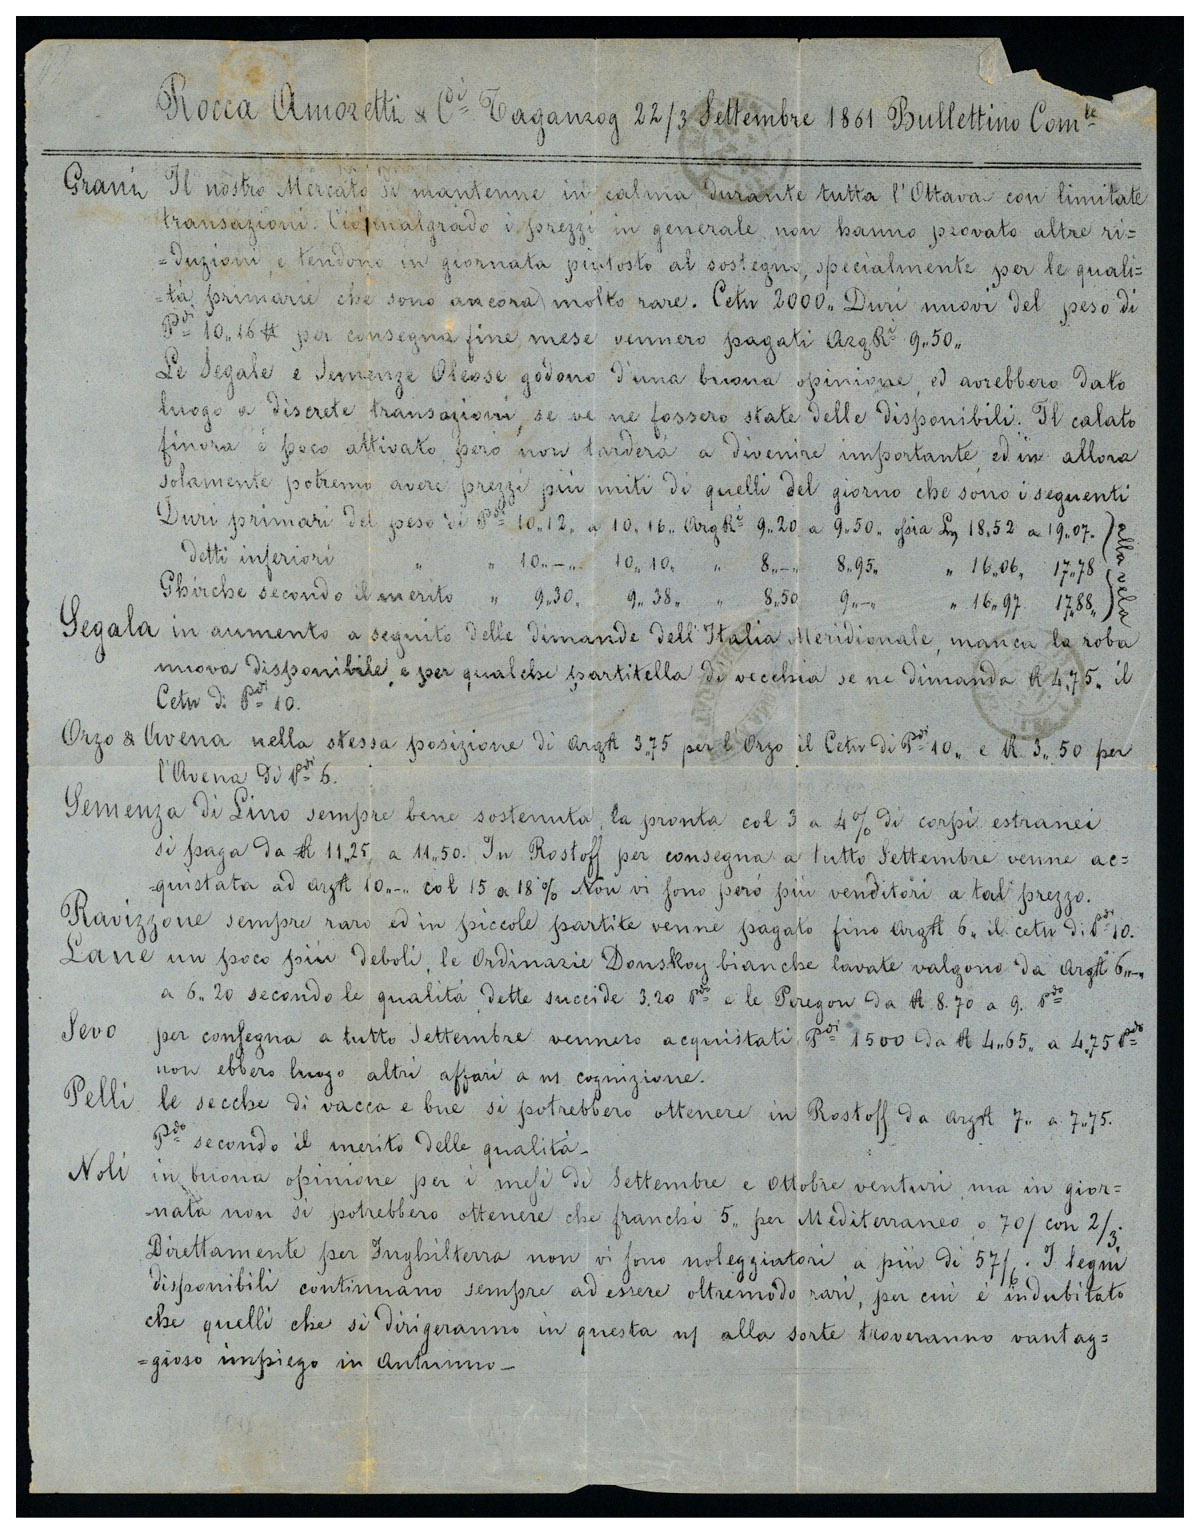 Rocca Amoretti & Cⁱ Taganrog 22/3 Settembre 1861 Bullettino Com.le
Grani Il nostro Mercato si mantenne in calma durante tutta l'Ottava con limitate
transazioni. Ciò malgrado i prezzi in generale non hanno provato altre ri=
=duzioni, e tendono in giornata piutosto al sostegno, specialmente per le quali=
=tà primarie che sono ancora molto rare. Cetw 2000„ Duri nuovi del peso di
Pdi 10„16 ℔ per consegna fine mese vennero pagati ArgRi 9„50„
Le Segale e Semenze Oleose godono d'una buona opinione, ed avrebbero dato
luogo a discrete transazioni, se ve ne fossero state delle disponibili. Il calato
finora è poco attivato però non tarderà a divenire importante, ed in allora
solamente potremo avere prezzi più miti di quelli del giorno che sono i seguenti
Duri primari del peso di Pdi 10„12„ a 10„16„ ArgRi 9„20 a 9„50„ ossia Ln 18„52 a 19„07„
detti inferiori „ „ 10„–„ 10„10„ „ 8„–„ 8„95„ „ 16„06„ 17„78
Ghirche secondo il merito „ 9„30„ 9„38„ „ 8„50 9„–„ „ 16„97 17„88„
alla vela
Segala in aumento a seguito delle dimande dell'Italia Meridionale, manca la roba
nuova disponibile, e per qualche partitella di vecchia se ne dimanda R 4„75„ il
Cetw di Pdi 10.
Orzo & Avena nella stessa posizione di ArgR 3„75 per l'Orzo il Cetw di Pdi 10„ e R 3„50 per
l'Avena di Pdi 6.
Semenza di Lino sempre bene sostenuta, la pronta col 3 a 4% di corpi estranei
si paga da R 11„25 a 11„50. In Rostoff per consegna a tutto Settembre venne ac=
=quistata ad ArgR 10„–„ col 15 a 18% Non vi sono però più venditori a tal prezzo.
Ravizzone sempre raro ed in piccole partite venne pagato fino ArgR 6„ il cetw di Pdi 10.
Lane un poco più deboli, le Ordinarie Donskoy bianche lavate valgono da ArgR 6„–„
a 6„20 secondo le qualità, dette succide 3.20 Pdo e le Peregon da R 8.70 a 9. Pdo
Sevo per consegna a tutto Settembre vennero acquistati Pdi 1500 da R 4„65„ a 4„75 Pdo
non ebbero luogo altri affari a ns cognizione.
Pelli le secche di vacca e bue si potrebbero ottenere in Rostoff da ArgR 7„ a 7„75.
Pdo secondo il merito delle qualità_
Noli in buona opinione per i mesi di Settembre e Ottobre venturi, ma in gior=
=nata non si potrebbero ottenere che franchi 5„ per Mediterraneo, o 70/ con 2/3.
Direttamente per Inghilterra non vi sono noleggiatori a più di 57/6. I legni
disponibili continuano sempre ad essere oltremodo rari, per cui è indubitato
che quelli che si dirigeranno in questa vs alla sorte troveranno vantag=
=gioso impiego in Autunno_